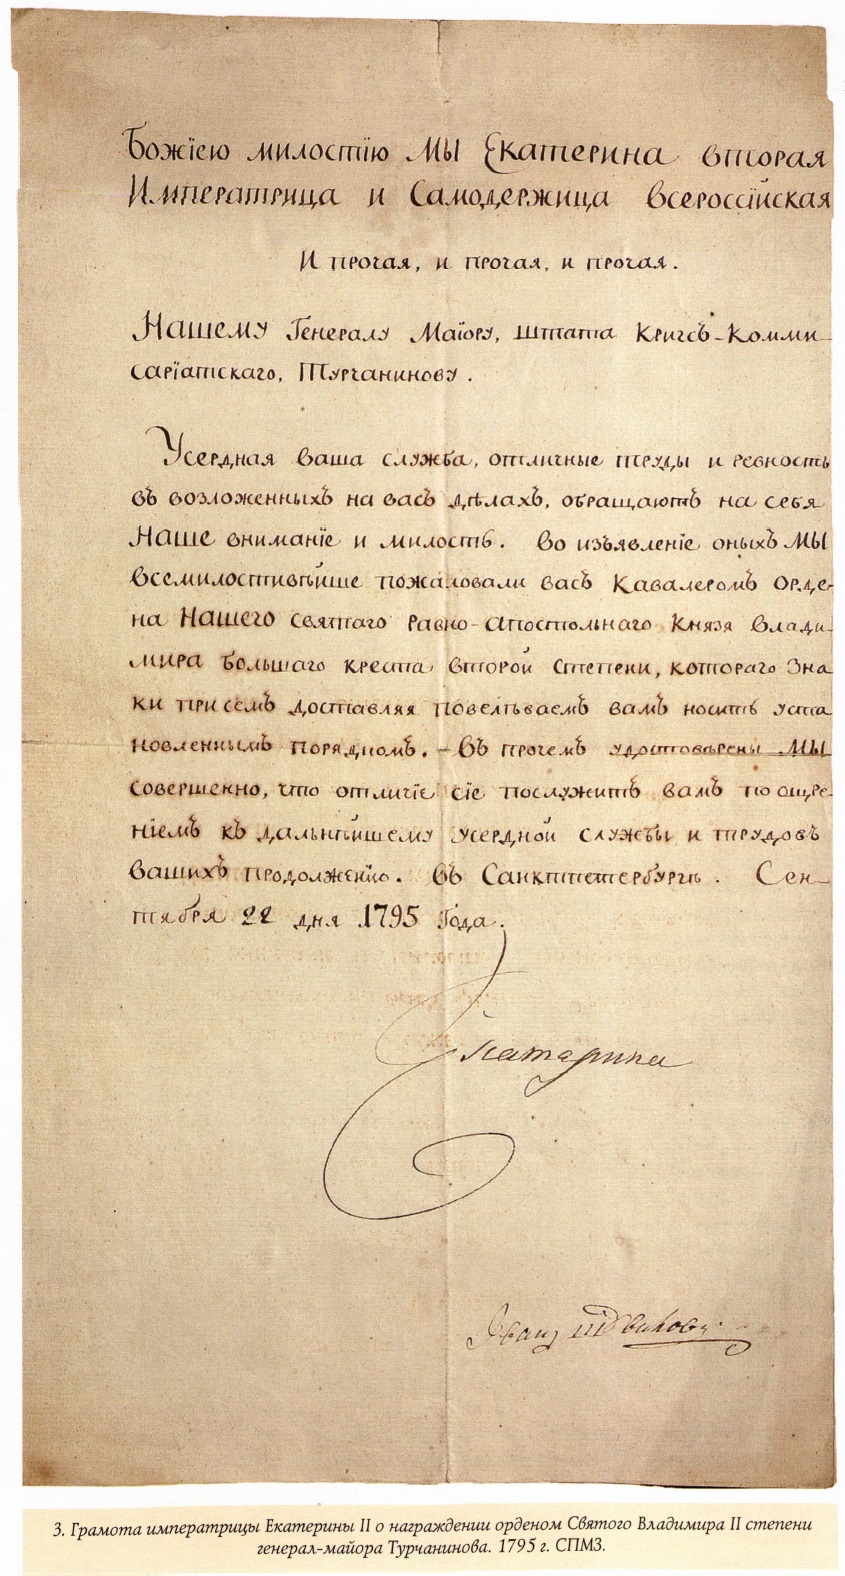 Божіею милостію МЫ Екатерина вторая
Императрица и Самодержица всероссійская
И прочая, и прочая, и прочая.
Нашему Генералу Маіору, штата Кригсъ-Комми-
саріатскаго, Турчанинову.
Усердная ваша служба, отличные труды и ревность
въ возложенныхъ на васъ дѣлахъ, обращаютъ на себя
Наше вниманіе и милость. Во изъявленіе оныхъ МЫ
всемилостивѣйше пожаловали васъ Кавалеромъ Орде-
на Нашего святаго Равно-апостольнаго Князя Влади-
мира большаго креста второй степени, котораго зна
ки при семъ доставляя повелѣваемъ вамъ носить уста
новленнымъ порядкомъ. – Въ прочемъ удостовѣрены МЫ
совершенно, что отличіе сіе послужитъ вамъ поощре-
ніемъ къ дальнѣйшему усердной службы и трудовъ
вашихъ продолженію. Въ Санктпетербургѣ. Сен-
тября 22 дня 1795 Года.
Екатерина
Иванъ
3. Грамота императрицы Екатерины II о награждении орденом Святого Владимира II степени
генерал-майора Турчанинова. 1795 г. СПМЗ.